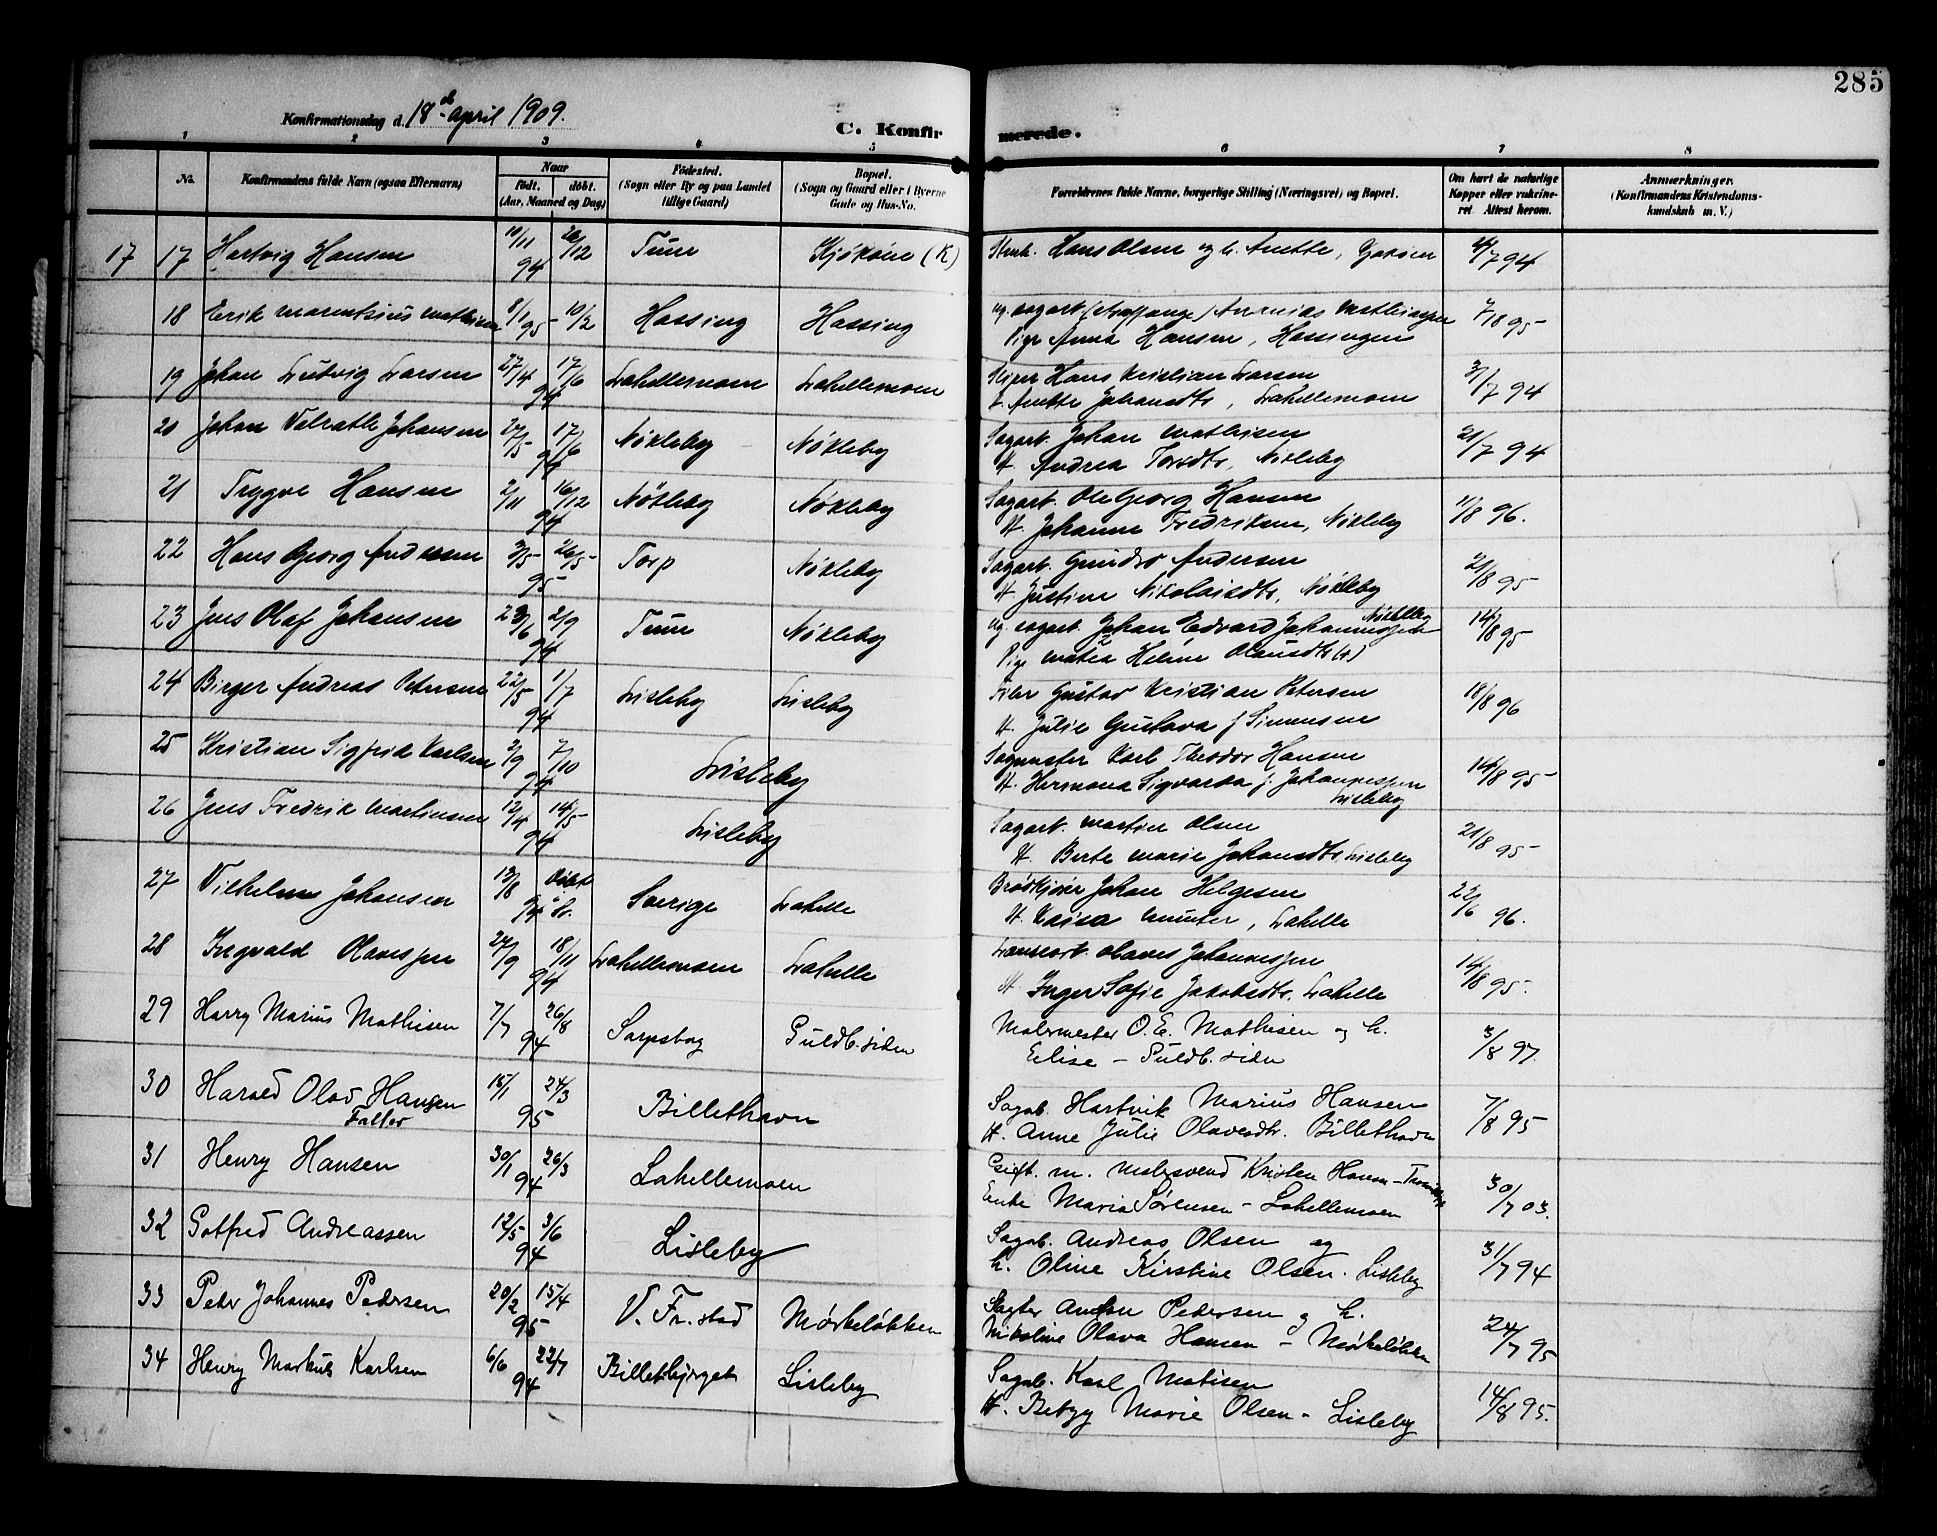 285
Konfirmationsdag d. 18de april 1909.
C. Konfirmerede.
1 2 3 4 5 6 7 8
No. Konfirmandens fulde Navn (ogsaa Efternavn) Naar født. døbt. (Aar, Maaned og Dag) Fødested. (Sogn eller By og paa Landet tillige Gaard) Bopæl. (Sogn og Gaard eller i Byerne Gade og Hus-No. Forældrenes fulde Navne, borgerlige Stilling (Næringsvei) og Bopæl. Om havt de naturlige Kopper eller vakcineret Attest herom. Anmærkninger. (Konfirmandens Kristendomskundskab m. V.)
17 17 Hartvig Hansen 10/11 94 26/12 Tune Kjøkøie (K) Hans Olsen og h. Anette,
18 Erik Marentsius Mathisen 8/1 95 10/2 Hassing Hassing ug. sagarb. Ananias
Pige Anna Hansen, Hassingen 7/8 95
19 Johan Ludvig Larsen 27/4 17/6 94 Lahellemoen Lahellemoen Hans Kristian Larsen
H. Anette Johansdtr, Lahellemoen 3/7 94
20 Johan Valrath Johansen 27/5 17/6 94 Nøkleby Nøkleby Sagarb. Johan Mathisen
H. Andrea Nøkleby 21/7 94
21 Trygve Hansen 2/11 16/12 94 Nøkleby Nøkleby Sagarb. Ole Georg Hansen
H. Johanne Fredriksen, Nøkleby 11/8 96.
22 Hans Georg Andersen 3/5 26/5 95 Torp Nøkleby Sagarb. Andersen
H. Justine Nikolaisdtr, Nøkleby 21/8 95
23 Jens Olaf Johansen 23/6 2/9 94 Tune Nøkleby ug. sagarb. Johan Edvard Johannessen Nøkleby
Pige Matea Helene Olausdtr 14/8 95
24 Birger Andreas Petersen 22/5 1/7 94 Lisleby Lisleby Filer Gustav Kristian Petersen
H. Julie Gustava f Simensen 18/8 96
25 Kristian Sigfrid Karlsen 2/9 7/10 94 Lisleby Sagmester Karl Theodor Hansen
H. Hermana Sigvarda f. Johannessen
Lisleby 14/8 95
26 Jens Fredrik Martinsen 12/4 14/5 94 Lisleby Sagarb. Martin Olsen
H. Berte Marie Johansdtr Lisleby 21/8 95
27 Vilhelm Johansen 13/8 94 Sverige Lahelle Brødkjører Johan Helgesen
H. Kaisa Lahelle 22/6 96.
28 Ingvald Olavessen 27/9 18/11 94 Lahellemoen Lahelle Olaves Johannessen
H. Inger Sofie Jakobsdtr. Lahelle 14/8 95.
29 Harry Marius Mathisen 7/7 26/8 94 Sarpsborg Guldb. siden Malermester O. E. Mathisen og h.
Elise – Guldb. siden 3/8 97.
30 Harald Olav Hansen
Falter 15/1 24/3 95 Billethavn Sagab. Hartvik Marius Hansen
H. Anne Julie Olavesdtr. Billethavn 7/8 95
31 Henry Hansen 30/1 26/3 94 Lahellemoen Gift. m. Malersvend Kristen Hansen –
Enke Maria Sørensen – Lahellemoen 30/7 03.
32 Gotfred Andreassen 12/5 3/6 94 Lisleby Sagab. Andreas Olsen og
h. Oline Kirstine Olsen. Lisleby 31/7 94
33 Peder Johannes Pedersen 20/2 15/4 95 V. Fr.stad Mørkeløkken Anton Pedersen og h.
Nikoline Olava Hansen – Mørkeløkken 24/7 95
34 Henry Markus Karlsen 6/6 22/7 94 Billetbjerget Lisleby Sagab. Karl Matisen
H. Betzy Marie Olsen – Lisleby 14/8 95.